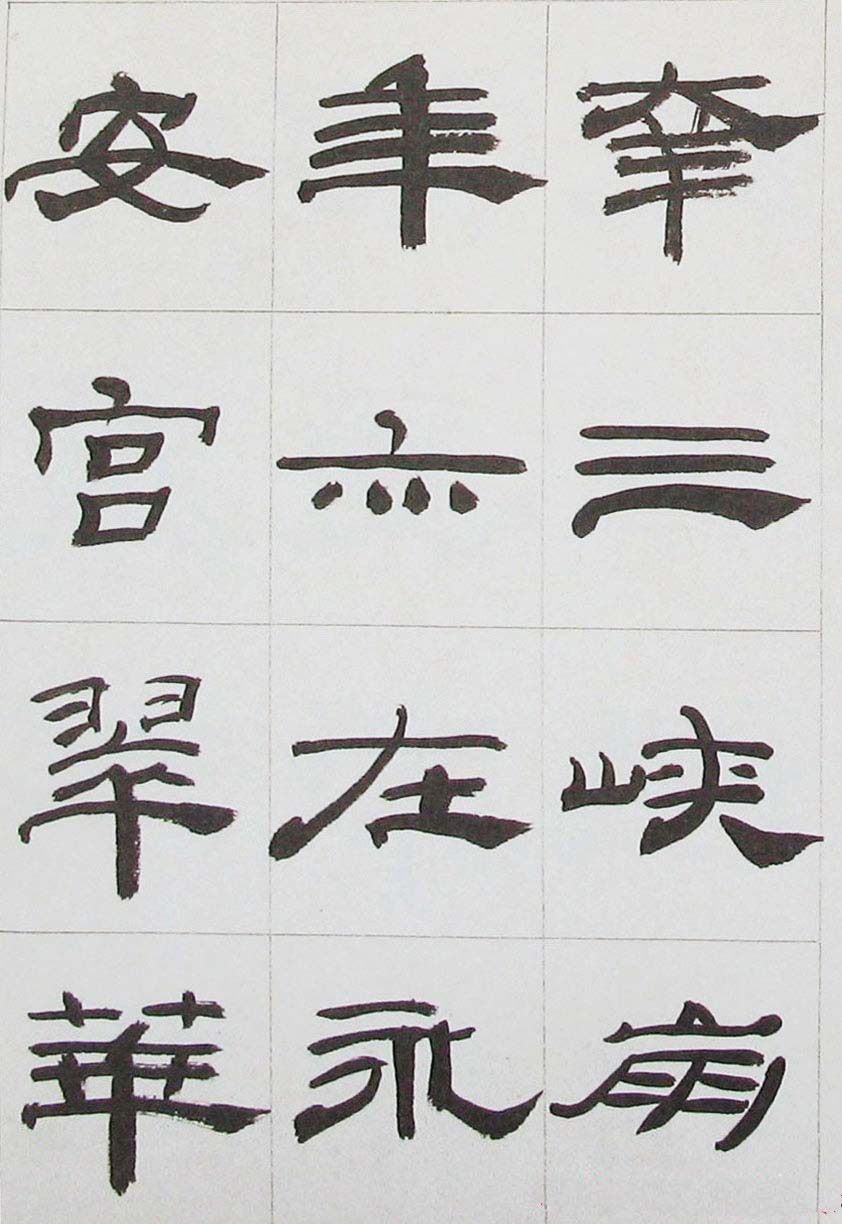 幸三峡崩
年亦在永
安宫翠華